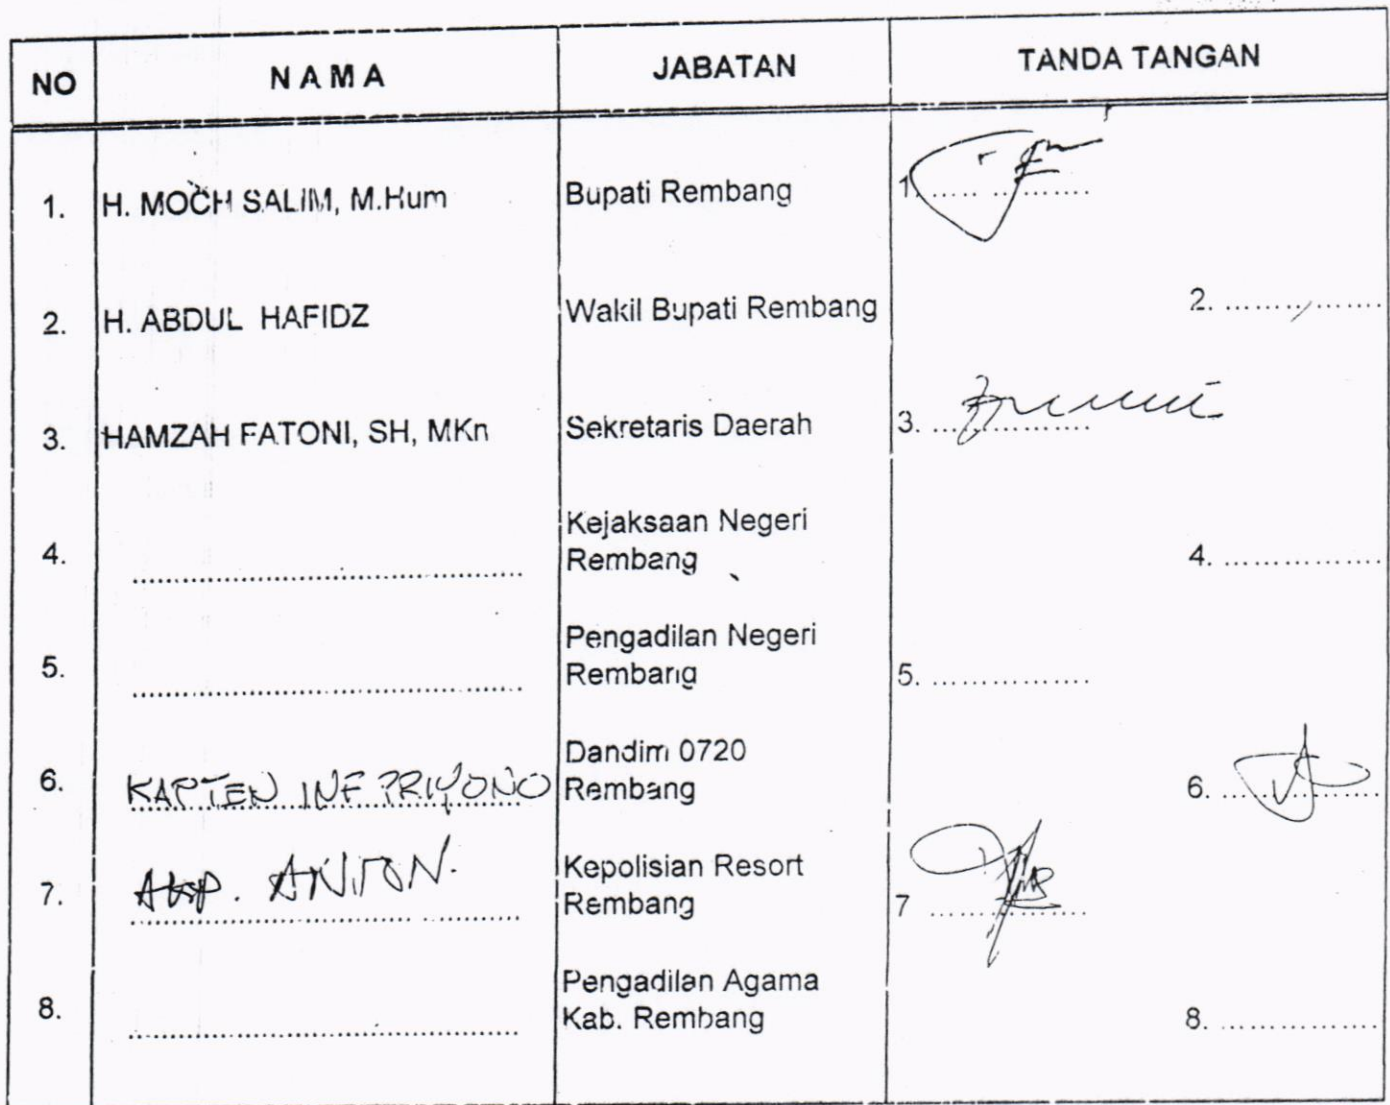 NO NAMA JABATAN TANDA TANGAN
1. H. MOCH SALIM, M.Hum Bupati Rembang 1. ..................
2. H. ABDUL HAFIDZ Wakil Bupati Rembang 2. ..................
3. HAMZAH FATONI, SH, MKn Sekretaris Daerah 3. ..................
Kejaksaan Negeri
4. .................. Rembang 4. ..................
Pengadilan Negeri
5. .................. Rembang 5. ..................
Dandim 0720
6. KAPTEN INF PRIYONO Rembang 6. ..................
Kepolisian Resort
7. AKP. ANTON. Rembang 7 ..................
Pengadilan Agama
8. .................. Kab. Rembang 8. ..................